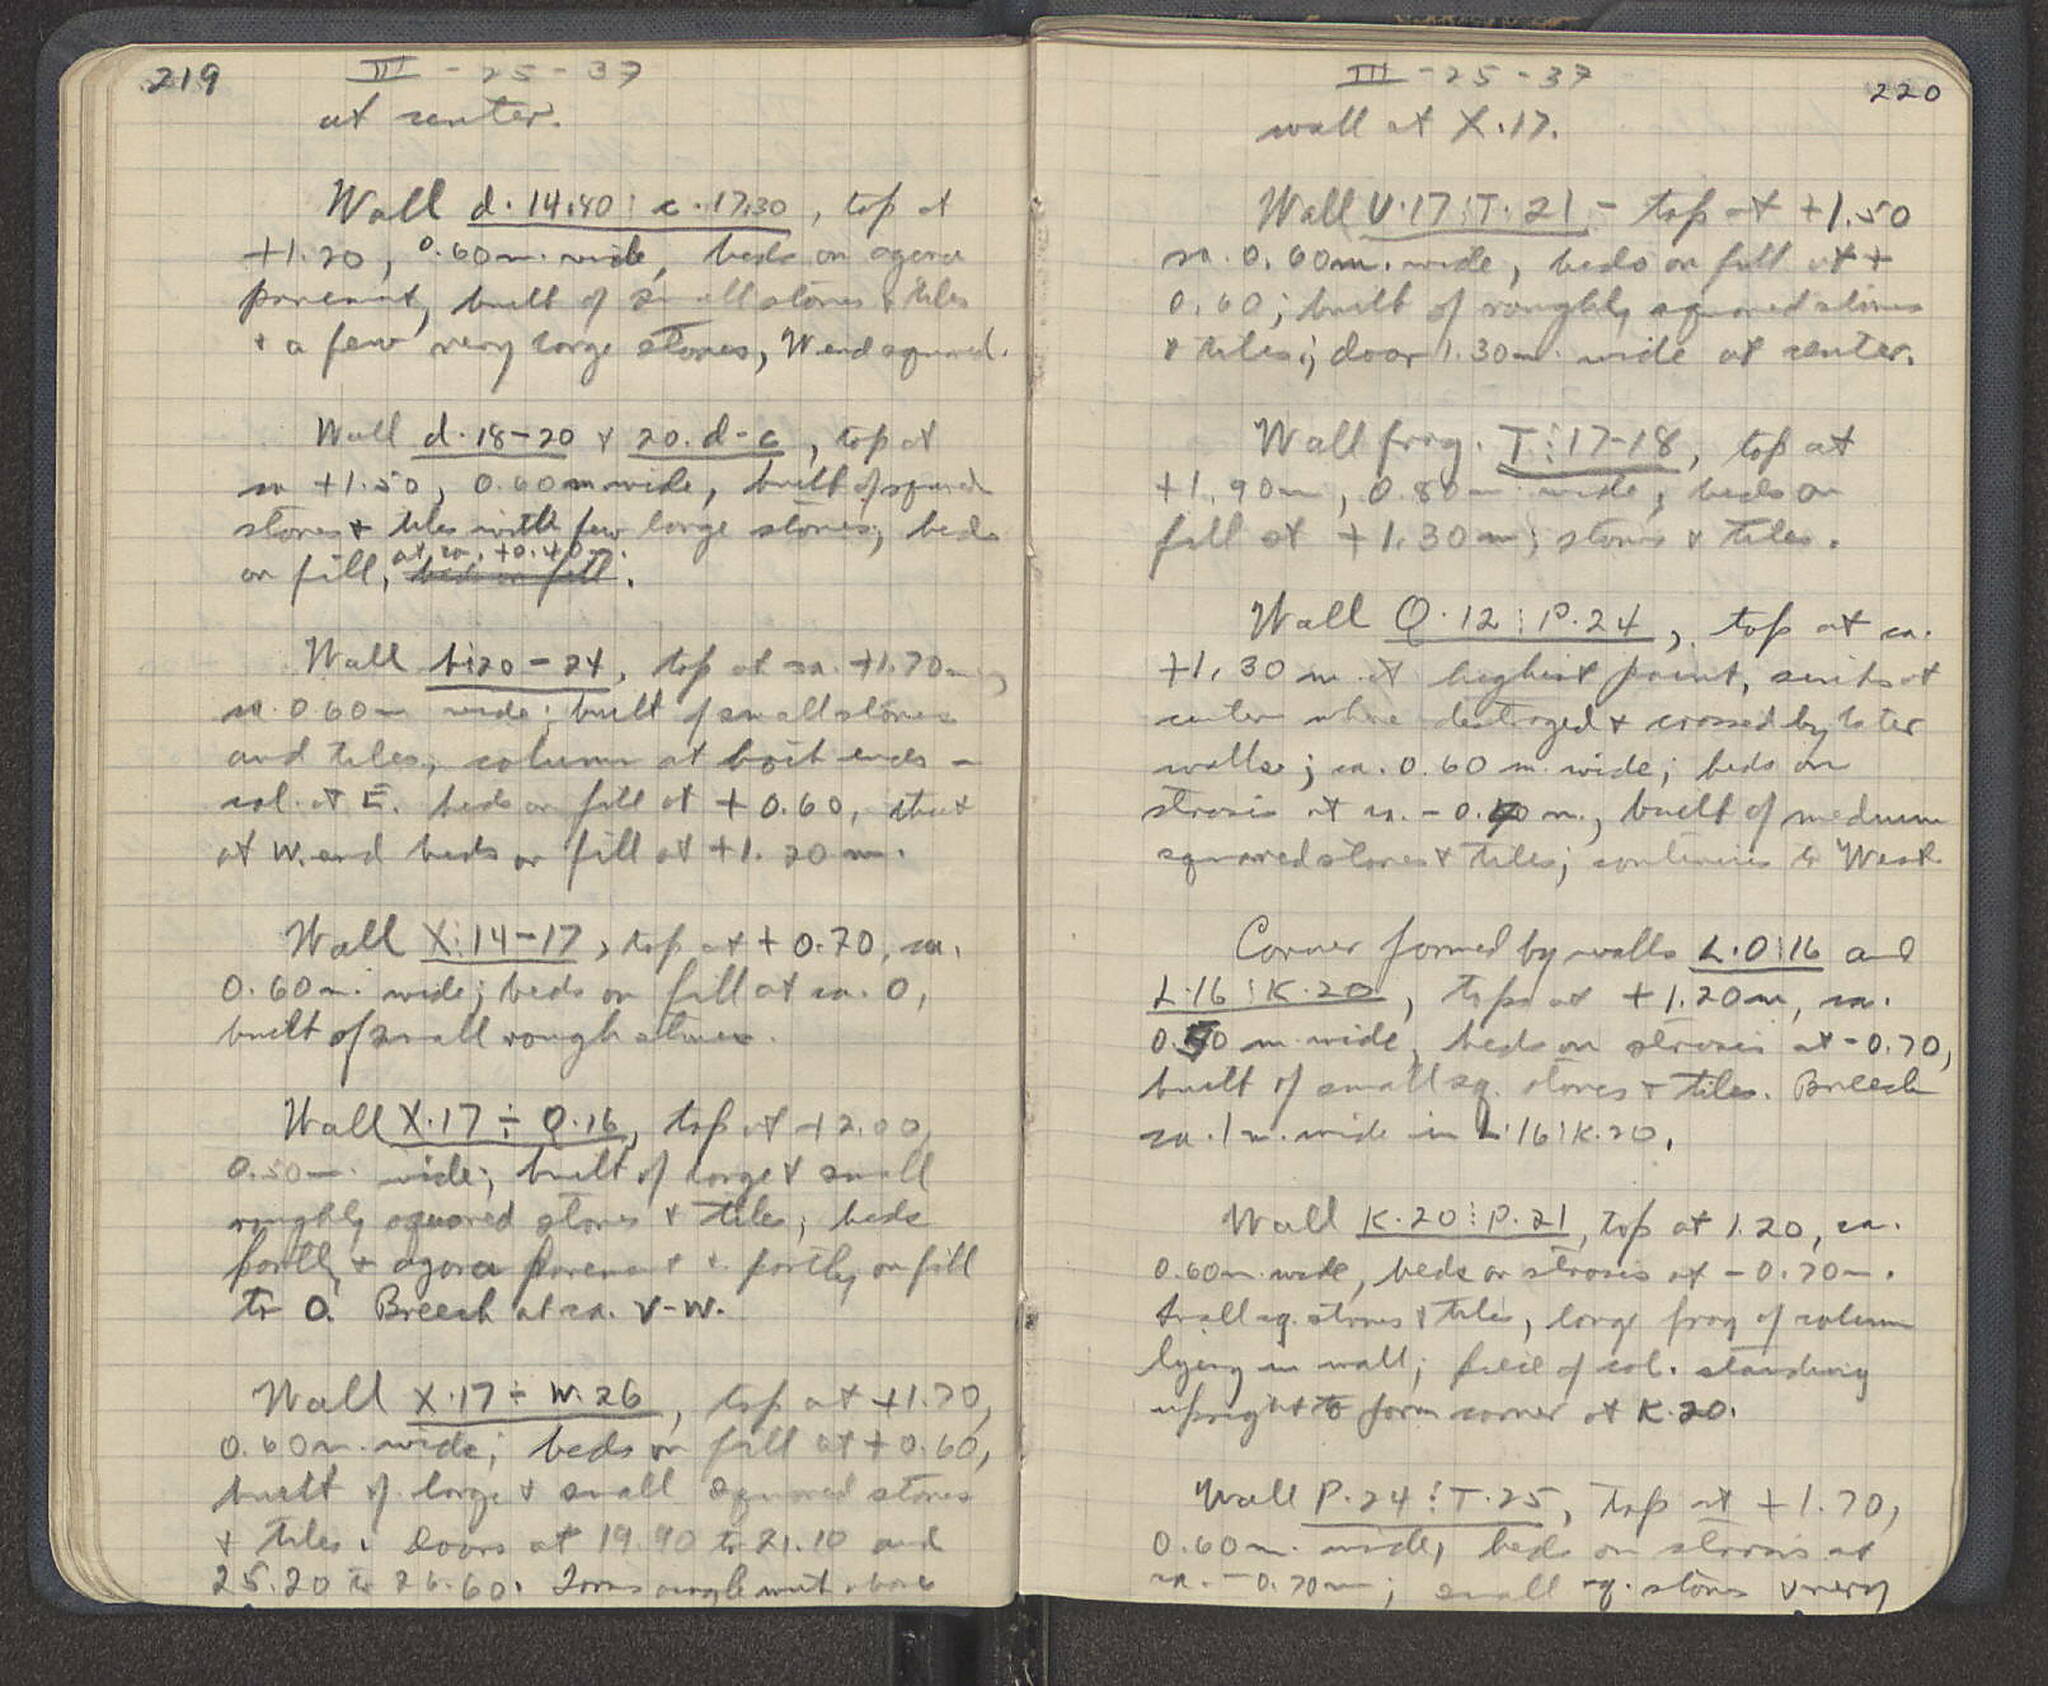 219
III - 25 - 37
at center.
Wall d.14.80 : c.17.30, top at
+1.20, 0.60m. wide, beds on agora
pavement, built of small stones & tiles
& a few very large stones, W end squared.
Wall d.18-20 & 20.d-c, top at
ca +1.50, 0.60m wide, built of squared
stones & tiles with few large stones, beds
at ca. +0.40m.
on fill, beds on fill.
Wall b:20-24, top at ca. +1.70m,
ca. 0.60m wide; built of small stones
and tiles, column at both ends -
col. at E. beds on fill at +0.60, that
at W. end beds on fill at +1.20 m.
Wall X:14-17, top at +0.70, ca.
0.60m. wide; beds on fill at ca. 0,
built of small rough stones.
Wall X.17 ÷ Q.16, top at +2.00,
0.50m. wide; built of large & small
roughly squared stones & tiles; beds
partly & agora pavement & partly on fill
to 0. Breech at ca. V-W.
Wall X.17 ÷ W.26, top at +1.70,
0.60m. wide; beds on fill at +0.60,
built of large & small squared stones
& tiles. Doors at 19.90 to 21.10 and
25.20 to 26.60. Forms angle with above
220
III - 25 - 37
wall at X.17.
Wall V.17:T.21 - top at +1.50
ca. 0.60m. wide, beds on fill at +
0.60; built of roughly squared stones
& tiles; door 1.30m. wide at center.
Wall frag. T:17-18, top at
+1.90m, 0.80m wide, beds on
fill at +1.30m; stones & tiles.
Wall Q.12:P.24, top at ca.
+1.30 m. at highest point, sinks at
center where destroyed & crossed by later
walls; ca. 0.60 m. wide; beds on
strosis at ca. -0.40 m., built of medium
squared stones & tiles; continues to West
Corner formed by walls L.O:16 and
L.16:K.20, tops at +1.20m, ca.
0.50 m wide, beds on strosis at -0.70,
built of small sq. stones & tiles. Breech
ca. 1 m. wide in L.16:K.20.
Wall K.20:P.21, top at 1.20, ca.
0.60m. wide, beds on strosis at -0.70m.
Small sq. stones & tiles, large frag of column
lying in wall; piece of col. standing
upright to form corner at K.20.
Wall P.24:T.25, top at +1.70,
0.60m. wide, beds on strosis at
ca. -0.70m; small sq. stones & very